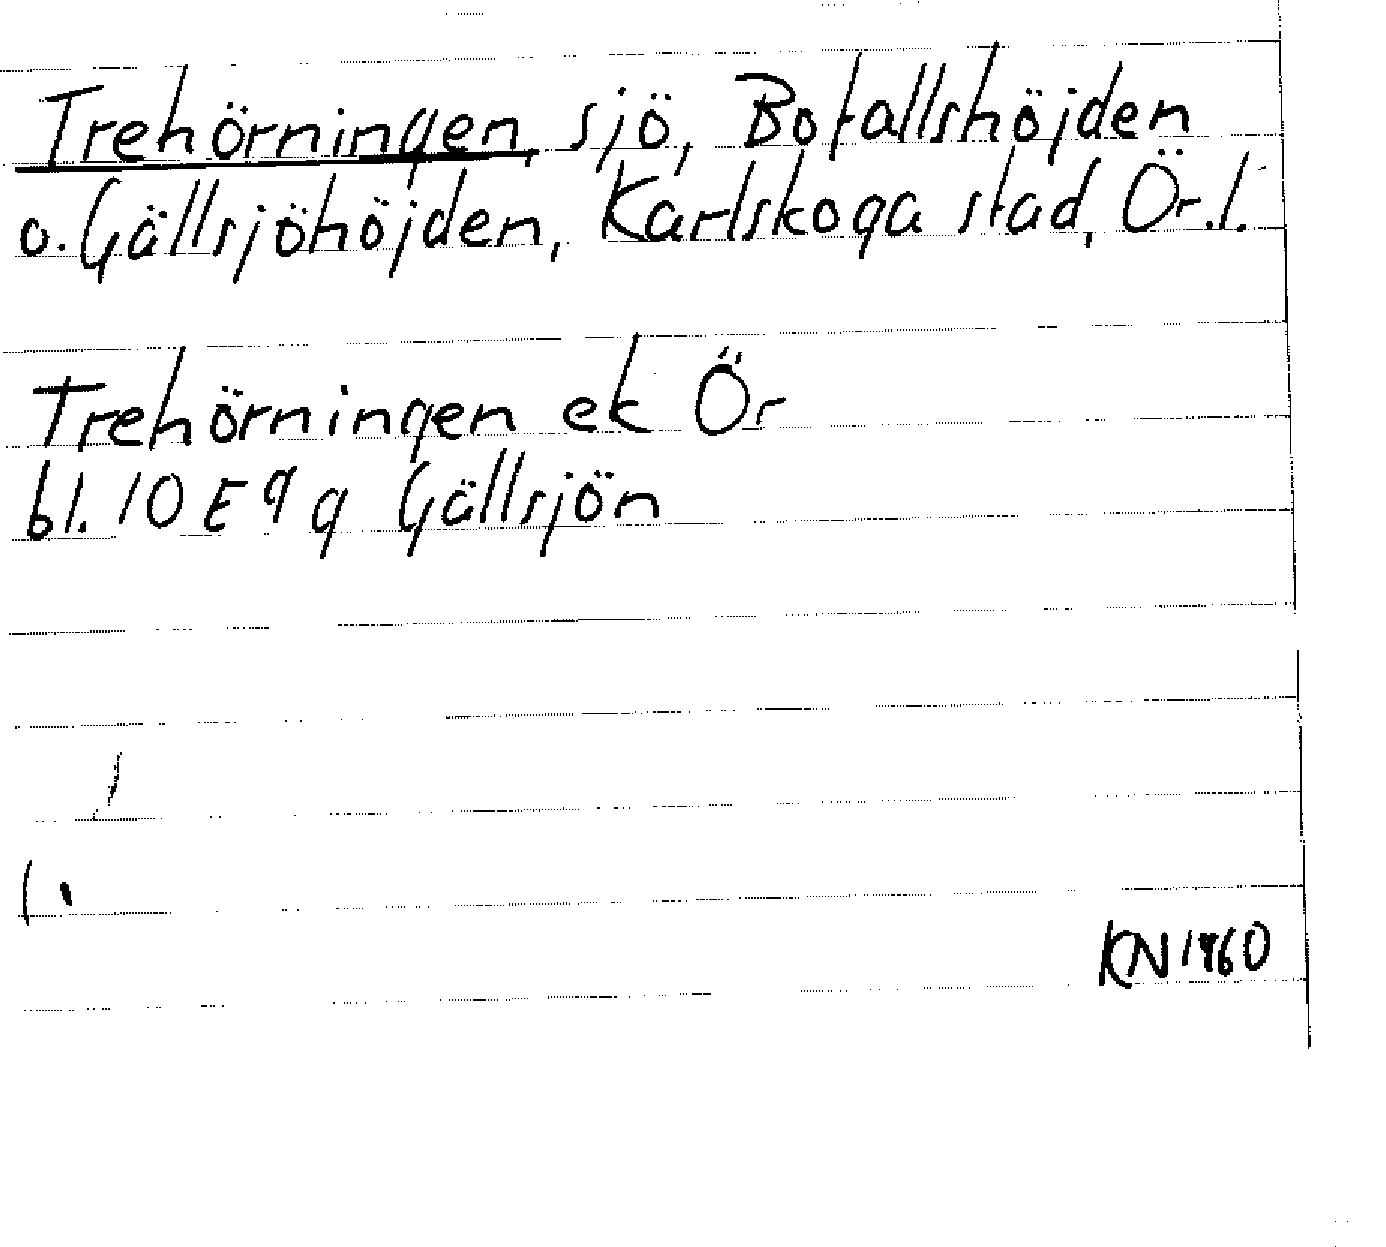 Trehörningen, sjö, Bofallshöjden
o. Gällsjöhöjden, Karlskoga stad, Ör.l.
Trehörningen ek Ör
bl. 10 E 9 g Gällsjön
KN 1960